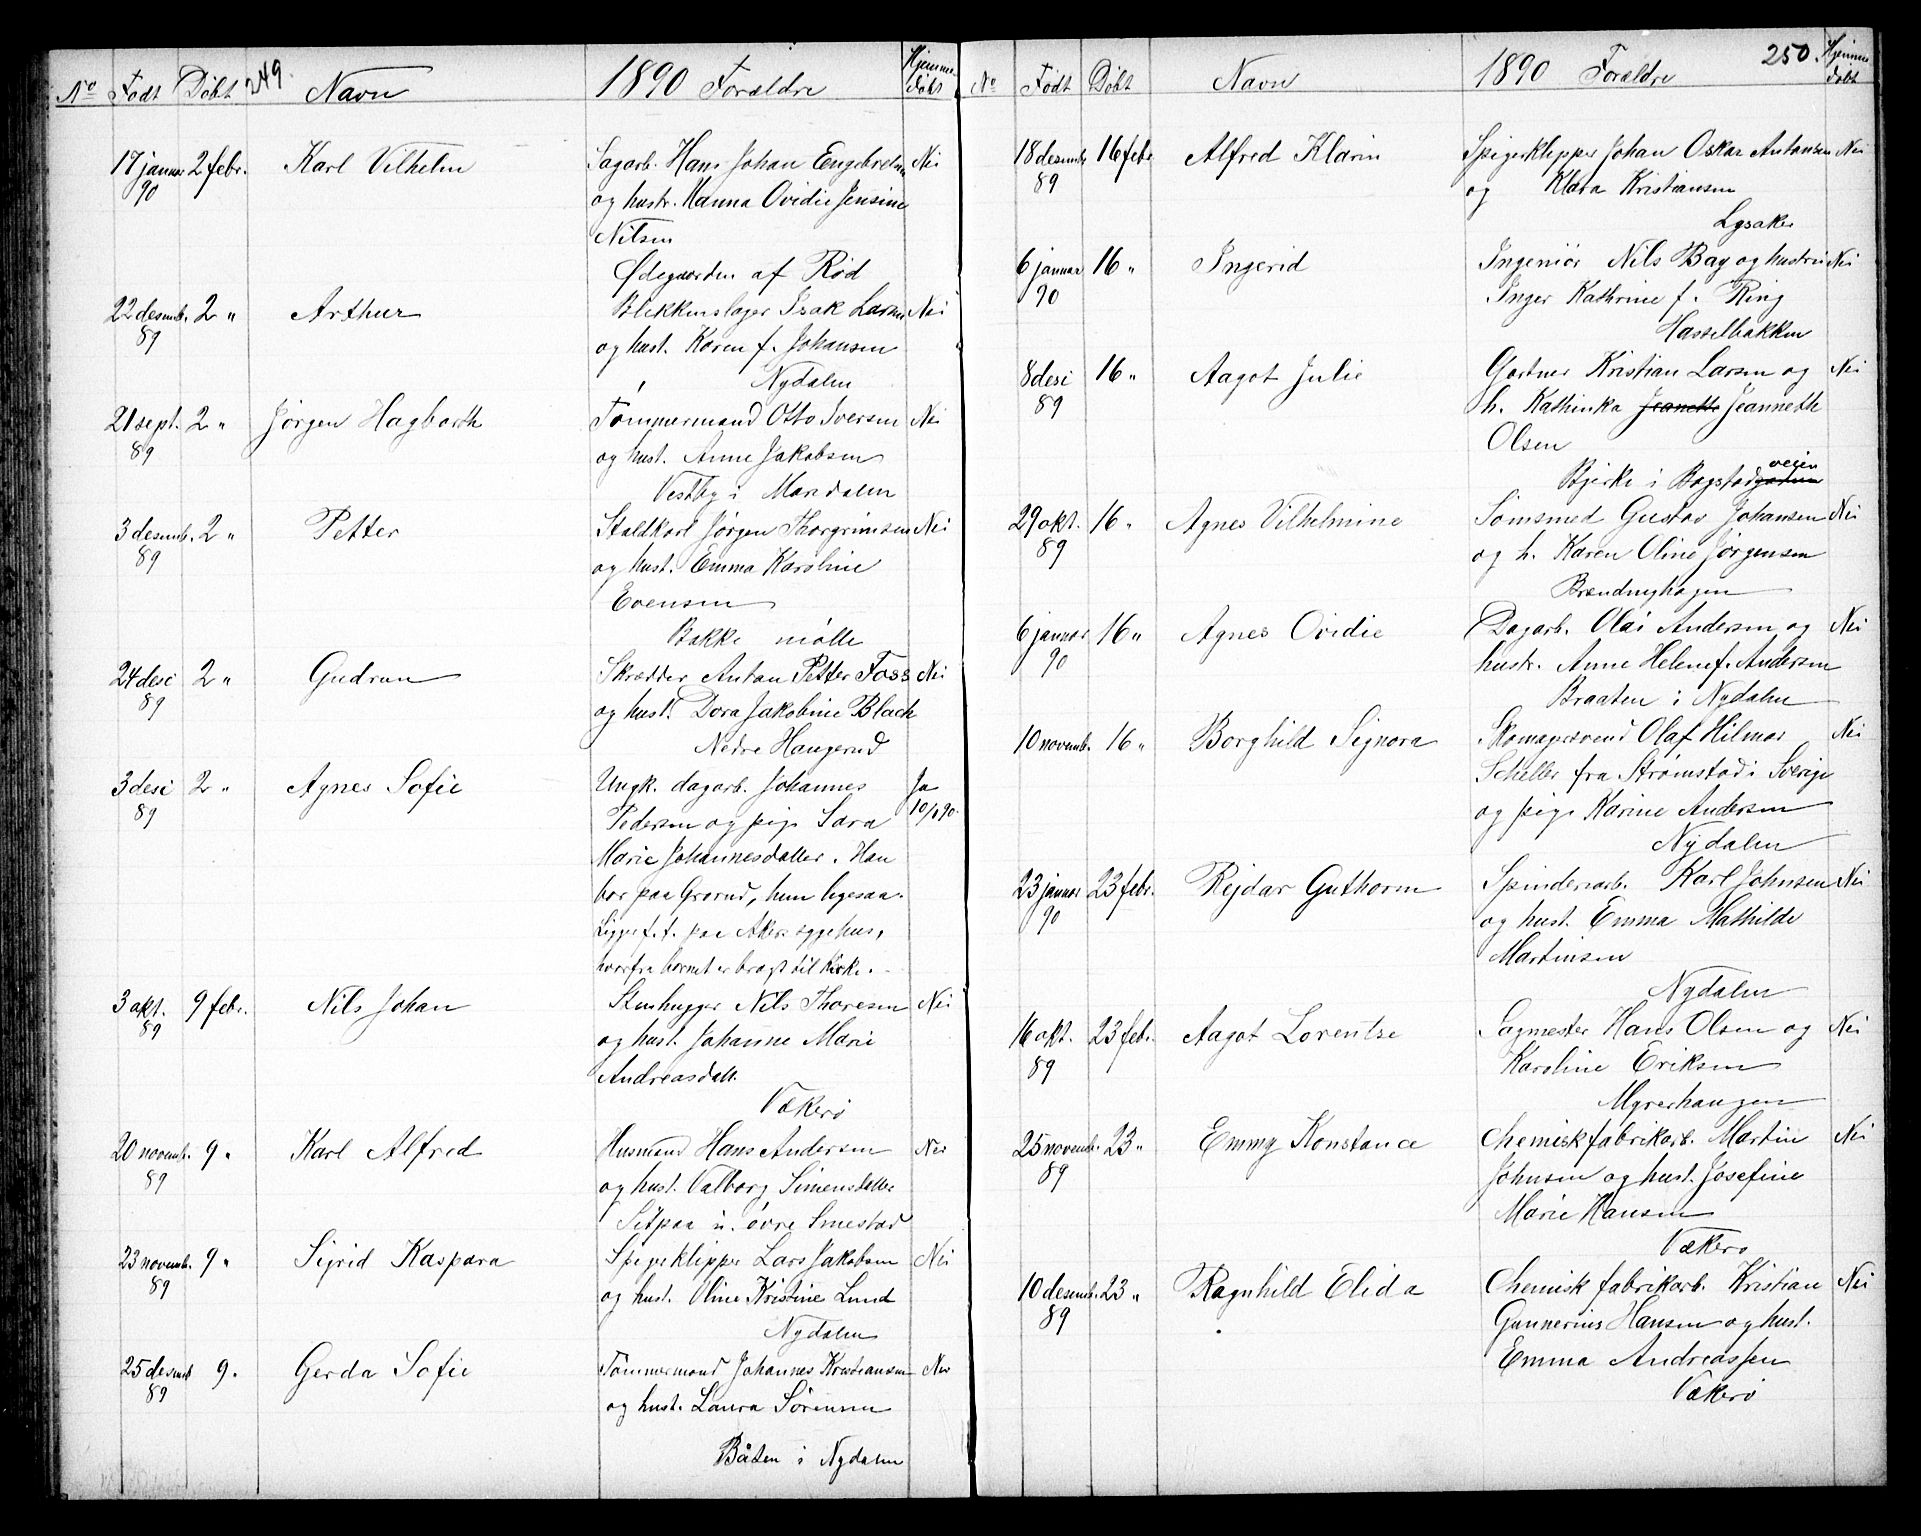 No Født Døbt 249. Navn 1890 Forældre Hjemme døbt
17 januar 90 2 febr. Karl Vilhelm Sagarb. Hans Johan Engebretsen Nei
og hustr. Hanna Ovidie Jensine
Nilsen
Ødegaarden af Rød
22 desemb. 89 2 " Arthur Blikkenslager Isak Larsen Nei
og hust. Karen f. Johansen
Nydalen
21 sept. 89 2 " Jørgen Hagbarth Tømmermand Otto Iversen Nei
og hust. Anne Jakobsen
Vestby i Maridalen
3 desemb. 89 2 " Petter Staldkarl Jørgen Thorgrimsen Nei
og hust. Emma Karoline
Evensen
Bakke mølle
24 desi 89 2 " Gudrun Skrædder Anton Petter Foss Nei
og hust. Dora Jakobine Black
Nedre Haugerud
3 desi 89 2 " Agnes Sofie Ungk. dagarb. Johannes Ja
Pedersen og pige Sara 10/1 90.
Marie Johannesdatter. Han
bor paa Grorud, hun ligesaa.
Ligger f. t. paa Akers sygehus,
hvorfra barnet er bragt til kirke.
3 okt. 89 9 febr. Nils Johan Stenhugger Nils Thoresen Nei
og hust. Johanne Marie
Andreasdatt.
Vækerø
20 novemb. 89 9 " Karl Alfred Husmand Hans Andersen Nei
og hust. Valborg Simensdatter
Sitpaa u. øvre Smestad
23 novemb. 89 9 " Sigrid Kaspara Spigerklipper Lars Jakobsen Nei
og hust. Oline Kristine Lund
Nydalen
25 desemb 89 9 " Gerda Sofie Tømmermand Johannes Kristiansen Nei
og hust. Laura Sørensen
Båten i Nydalen
No Født Døbt Navn 1890 Forældre 250 Hjemme døbt
18 desemb. 89 16 febr Alfred Klarin Spigerklipper Johan Oskar Antonsen Nei
og Klara Kristiansen
Lysaker
6 januar 90 16 " Ingerid Ingeniør Nils Bay og hustru Nei
Inger Kathrine f. Ring
Hasselbakken
8 desi 89 16 " Aagot Julie Gartner Kristian Larsen og Nei
h. Kathinka Jeanette Jeanneth
Olsen
Bjerke i Bogstadgaden veien
29 okt. 89 16 " Agnes Vilhelmine Sømsmed Gustav Johansen Nei
og h. Karen Oline Jørgensen
Brændnyhagen
6 januar 90 16 " Agnes Ovidie Dagarb. Olai Andersen og Nei
hustr. Anne Helene f. Andersen
Braaten i Nydalen
10 novemb. 16 " Borghild Signora Skomagersvend Olaf Hilmar Nei
Scheller fra Strømstad i Sverige
og pige Karine Andersen
Nydalen
23 januar 90 23 febr. Rejdar Guthorm Spinderiarb. Karl Johnsen Nei
og hust. Emma Mathilde
Martinsen
Nydalen
16 okt. 89 23 febr. Aagot Lorentse Sagmester Hans Olsen og Nei
Karoline Eriksen
Myrerhaugen
25 novemb. 89 23 " Emmy Konstance Chemiskfabrikarb. Martin Nei
Johnsen og hust. Josefine
Marie Hansen
Vækerø
10 desemb. 89 23 " Ragnhild Elida Chemisk fabrikarb. Kristian Nei
Gunnerius Hansen og hust.
Emma Andreassen
Vækerø